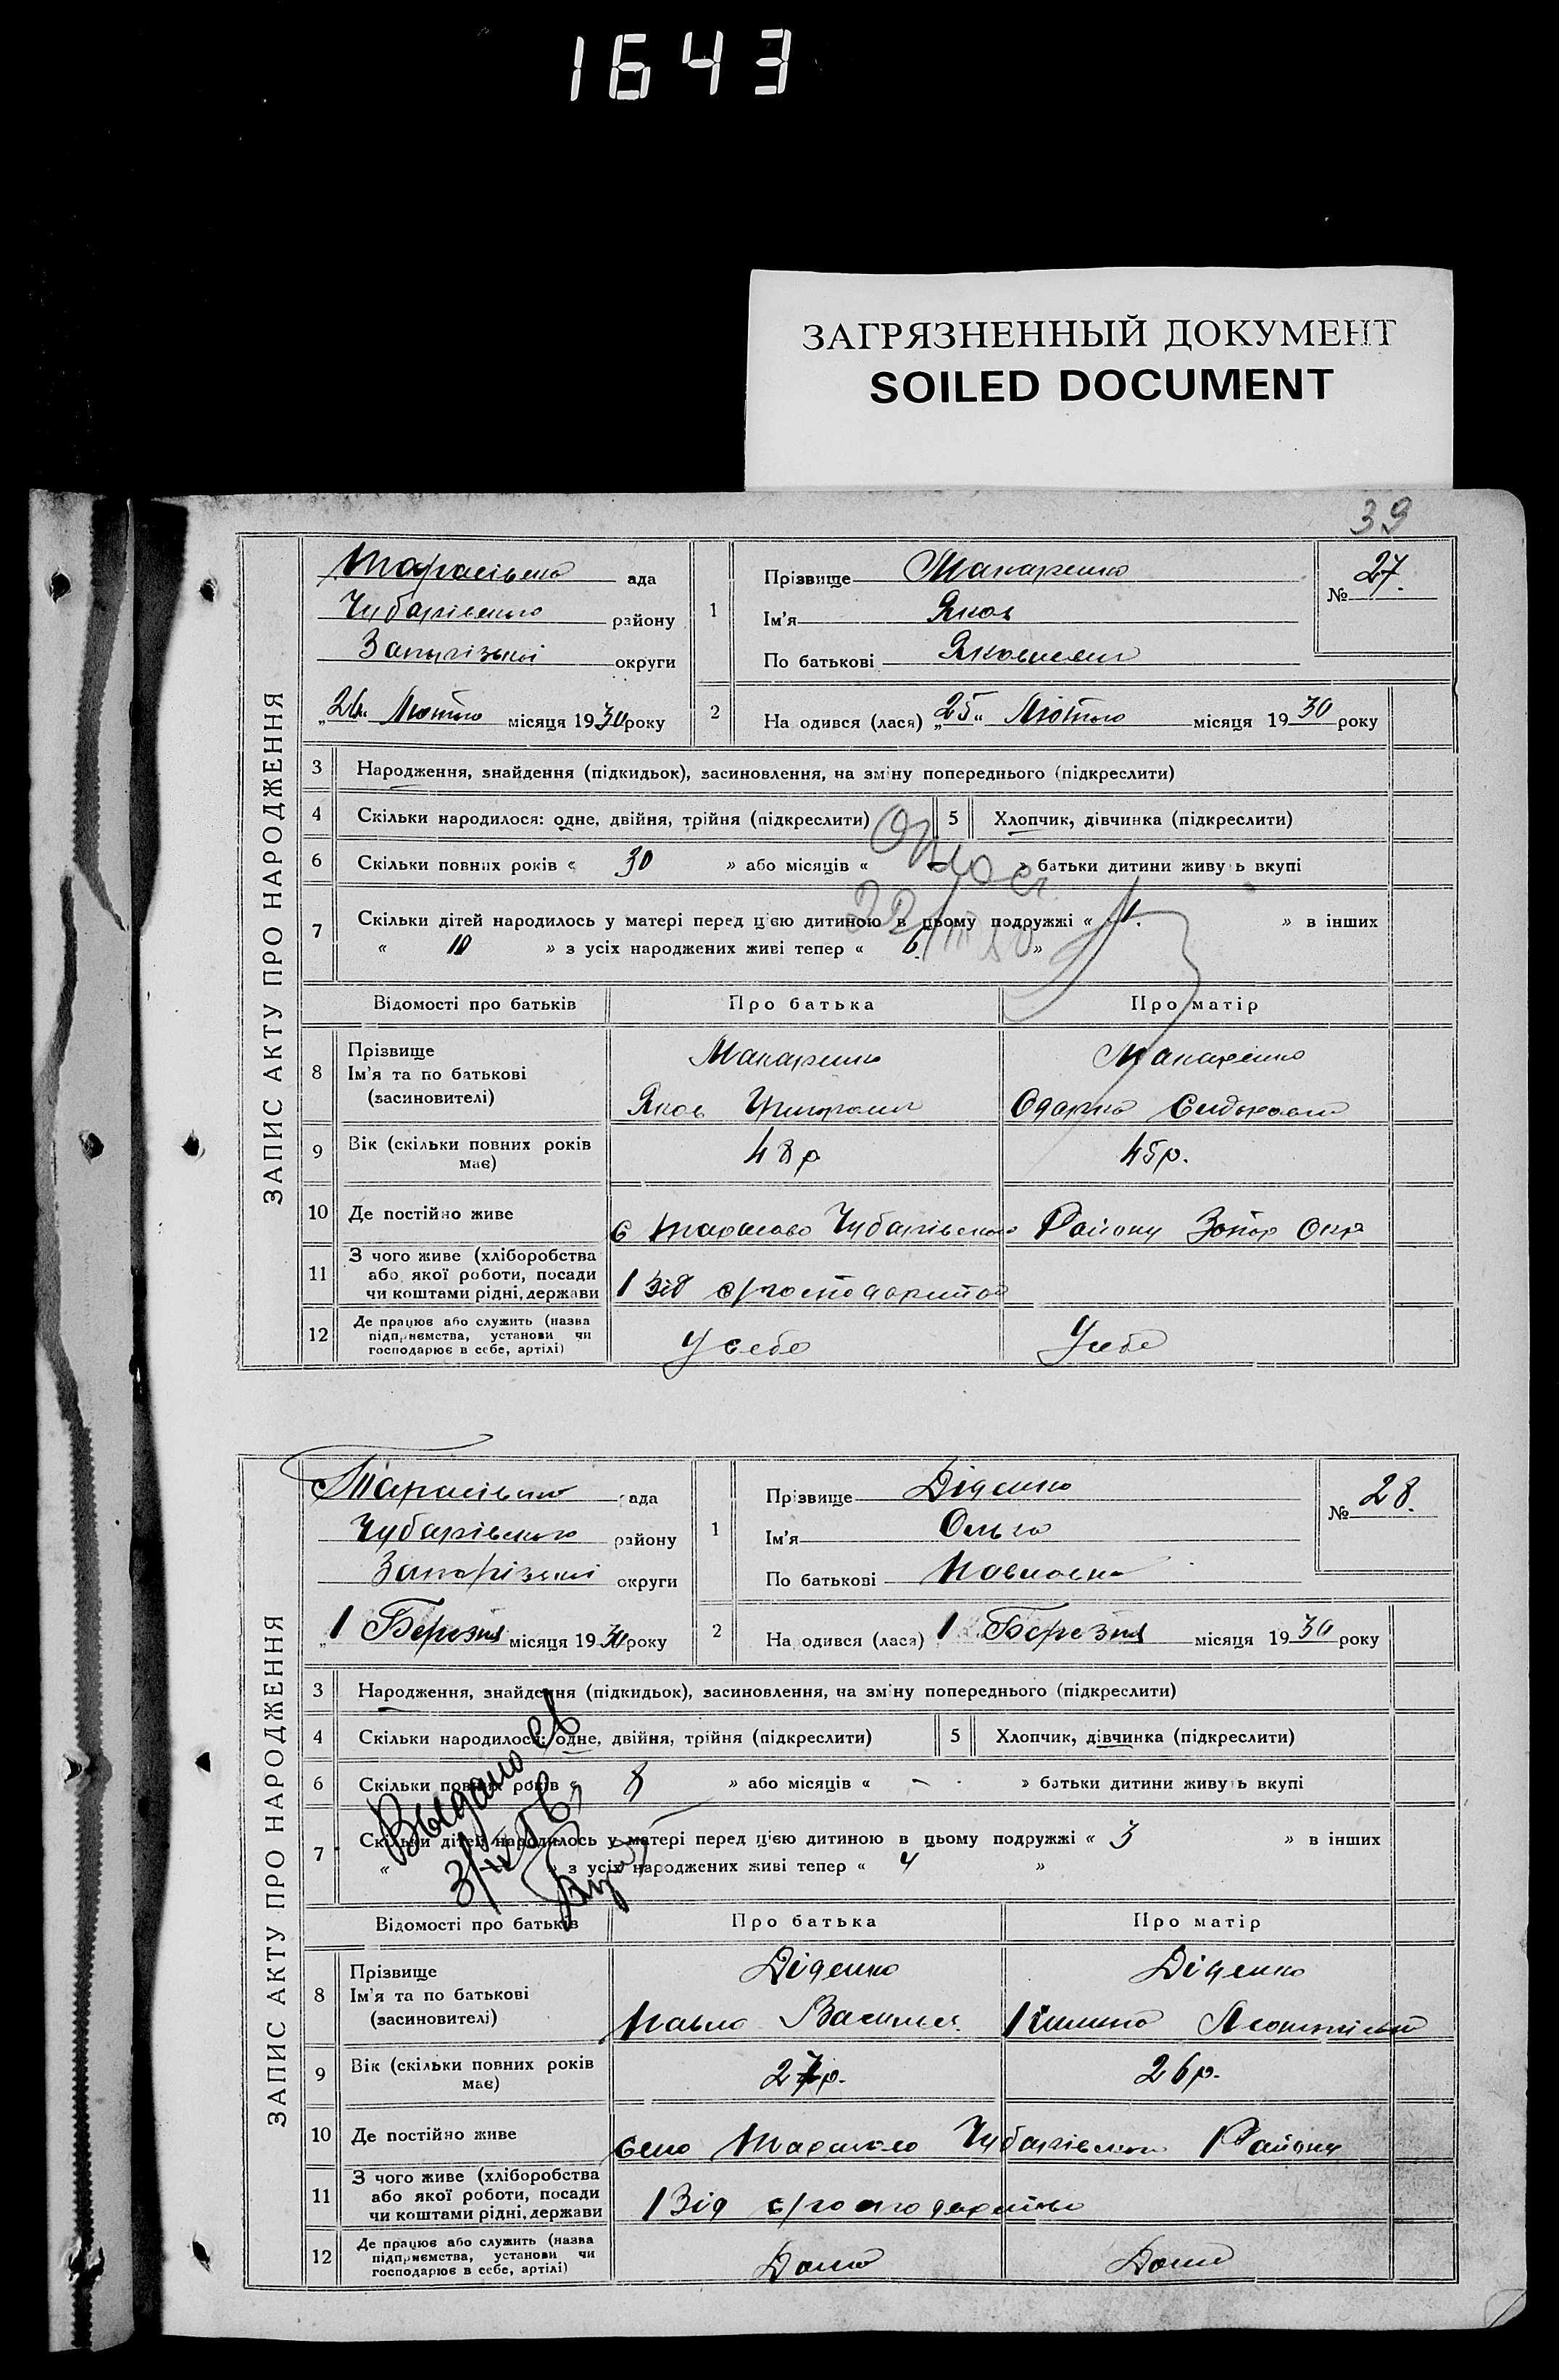 1643
ЗАГРЯЗНЕННЫЙ ДОКУМЕНТ
SOILED DOCUMENT
39
ЗАПИС АКТУ ПРО НАРОДЖЕННЯ
Тарасівська ада
Чубарівського району
Запорізької округи
„26" Лютого місяця 1930 року
1 Прізвище Макаренко
Ім'я Яков
По батькові Якович
№ 27.
2 На одився (лася) „25" Лютого місяця 1930 року
3 Народження, знайдення (підкидьок), засиновлення, на зміну попереднього (підкреслити)
4 Скільки народилося: одне, двійня, трійня (підкреслити) 5 Хлопчик, дівчинка (підкреслити)
6 Скільки повних років « 30 » або місяців « – » батьки дитини живуть вкупі
7 Скільки дітей народилось у матері перед цією дитиною в цьому подружжі « 1. » в інших
« 10 » з усіх народжених живі тепер « 6. »
Відомості про батьків Про батька Про матір
8 Прізвище Макаренко Макаренко
Ім'я та по батькові
(засиновителі) Яков Григоров Одарка
9 Вік (скільки повних років має) 48 р 45 р.
10 Де постійно живе с Тарасово Чубарівського Району Запор Окр
11 З чого живе (хліборобства
або якої роботи, посади
чи коштами рідні, держави 1 Від с/господарства
12 Де працює або служить (назва
підприємства, установи чи
господарює в себе, артілі) У себе У себе
ЗАПИС АКТУ ПРО НАРОДЖЕННЯ
Тарасівська ада
Чубарівського району
Запорізької округи
„1 Березня місяця 1930 року
1 Прізвище Діденко
Ім'я Ольга
По батькові Павловна
№ 28.
2 На одився (лася) 1 Березня місяця 1930 року
3 Народження, знайдення (підкидьок), засиновлення, на зміну попереднього (підкреслити)
4 Скільки народилося: одне, двійня, трійня (підкреслити) 5 Хлопчик, дівчинка (підкреслити)
6 Скільки повних років « 8 » або місяців « – » батьки дитини живуть вкупі
7 Скільки дітей народилось у матері перед цією дитиною в цьому подружжі « 3 » в інших
« » з усіх народжених живі тепер « 4 »
Выдано св
Відомості про батьків Про батька Про матір
8 Прізвище Діденко Діденко
Ім'я та по батькові
(засиновителі) Павло Васильев.
9 Вік (скільки повних років має) 27 р. 26 р.
10 Де постійно живе Село Тарасово Чубарівського Району
11 З чого живе (хліборобства
або якої роботи, посади
чи коштами рідні, держави 1 Від с/господарства
12 Де працює або служить (назва
підприємства, установи чи
господарює в себе, артілі) Дома Дома